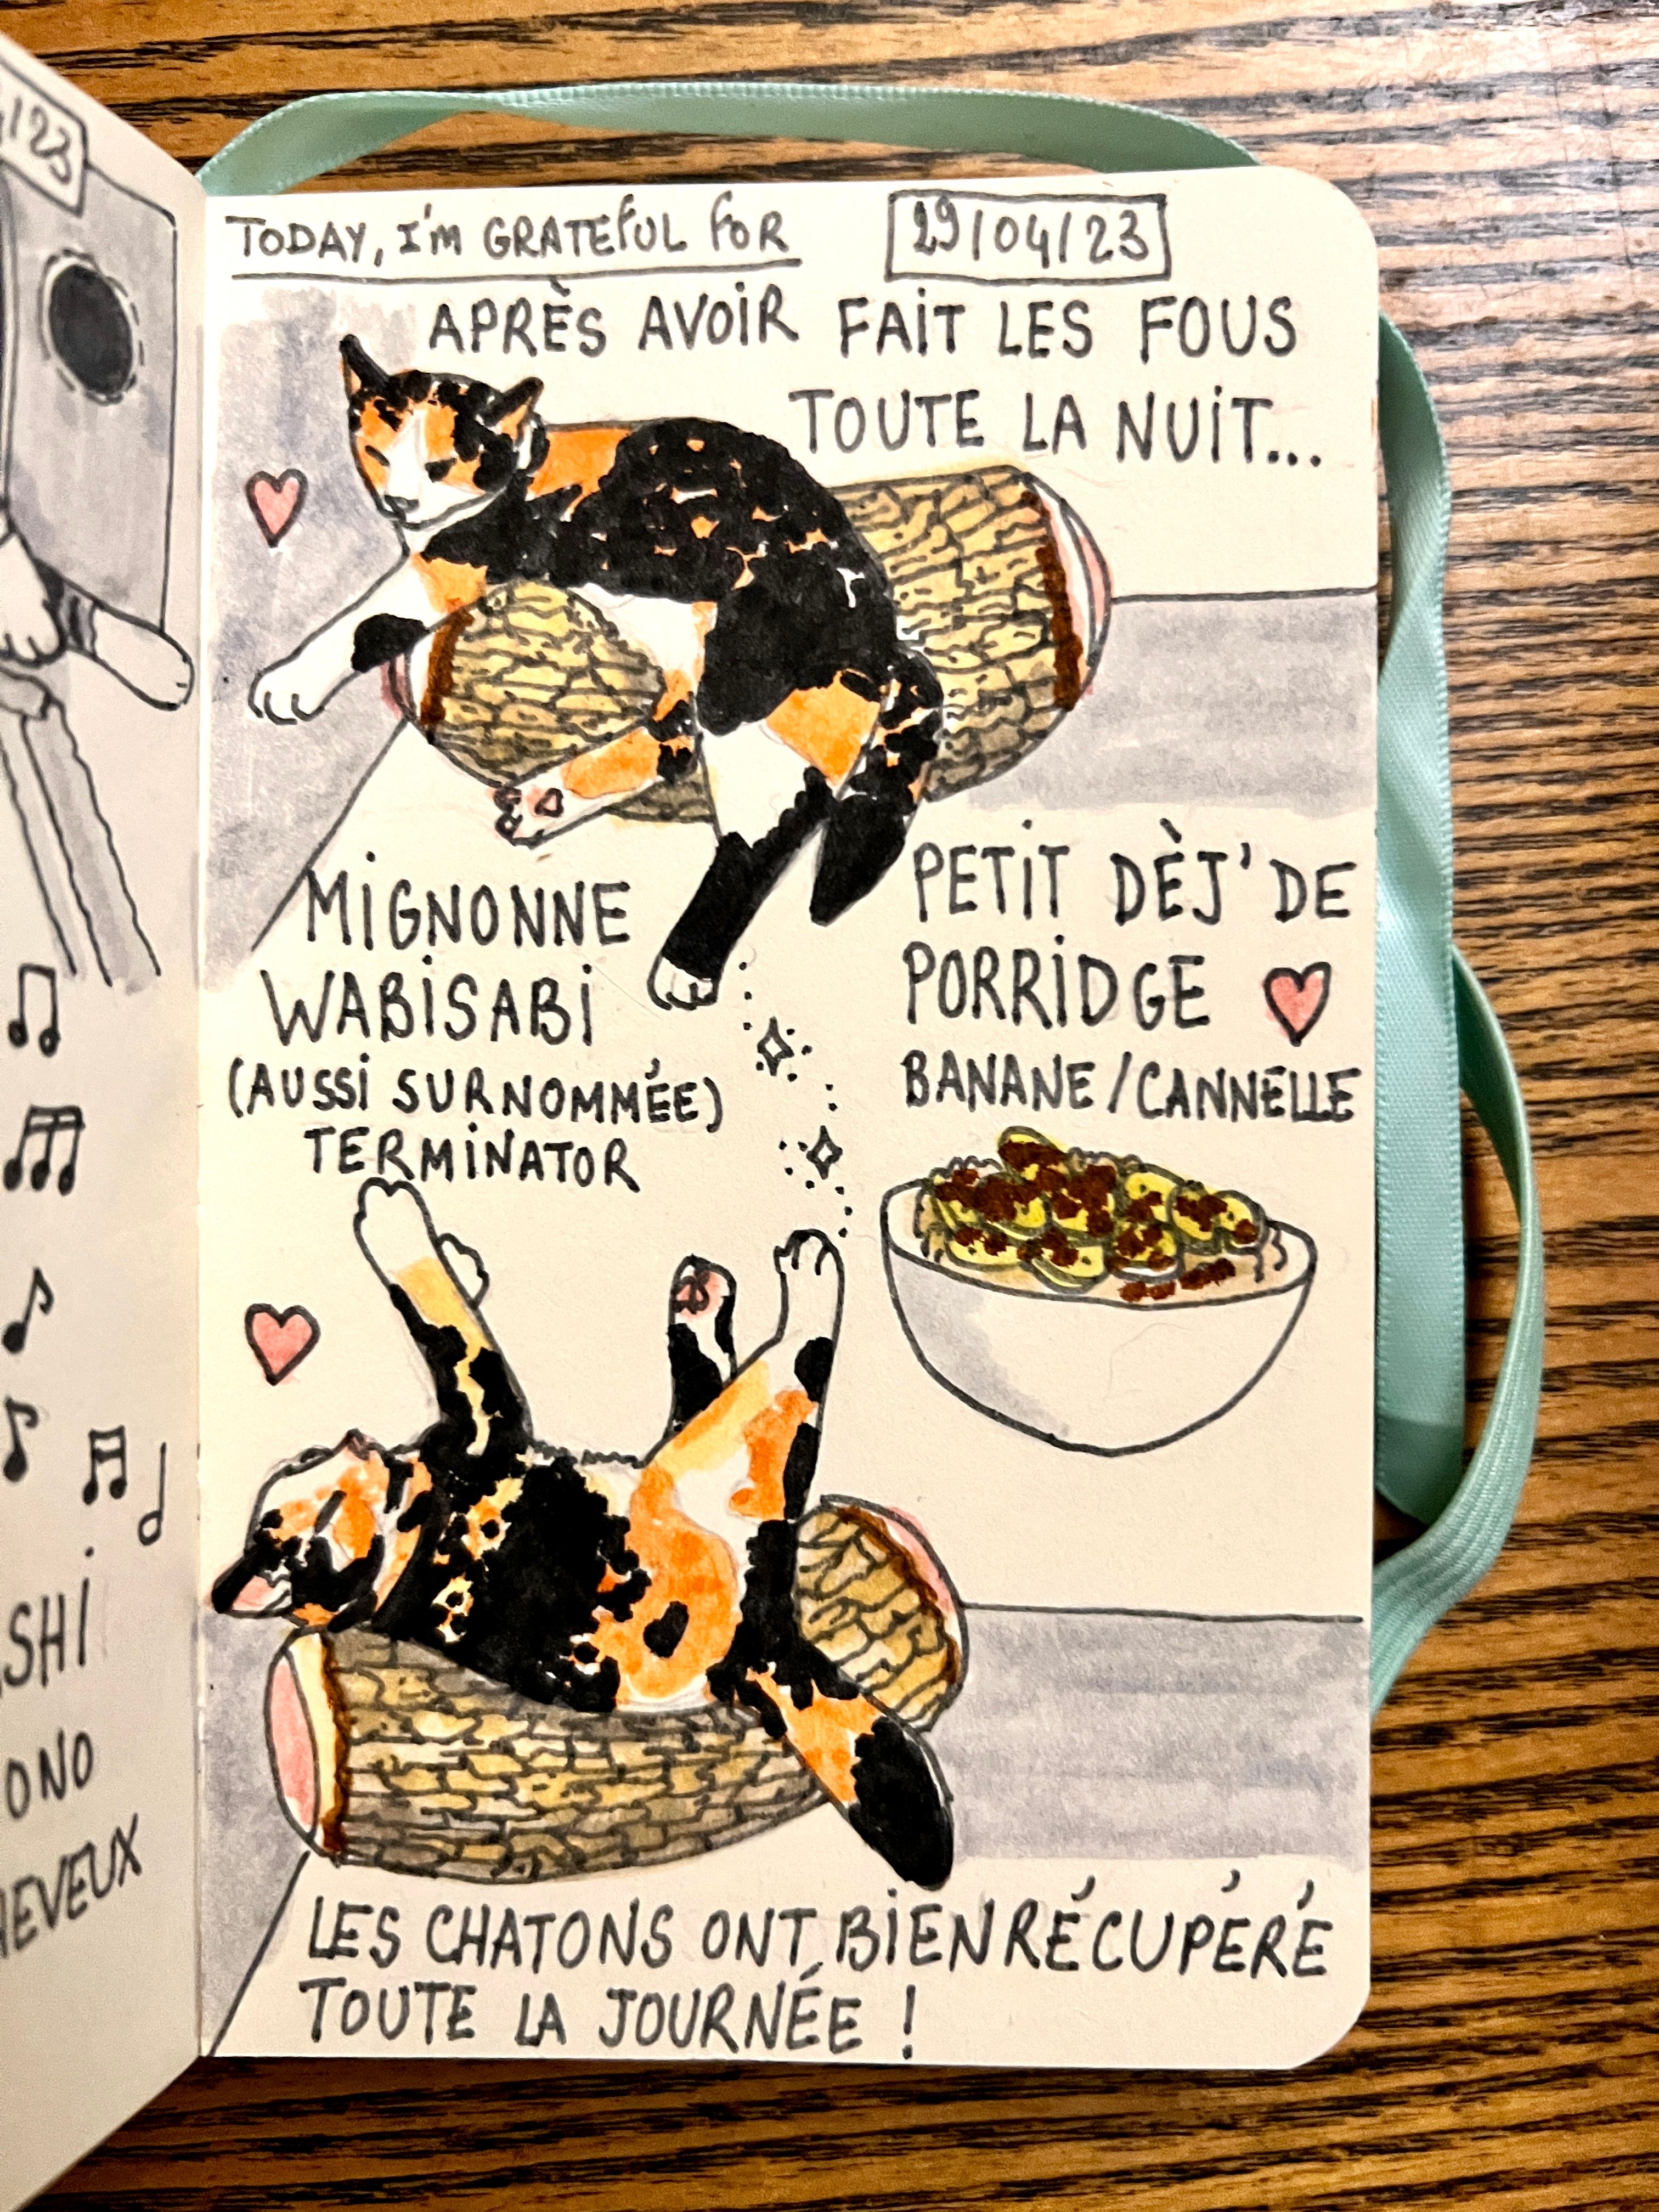 /23
TODAY, I'm GRATEFUL FOR
29/04/23
APRÈS AVOIR FAIT LES FOUS
TOUTE LA NUIT...
MIGNONNE
WABISABI
(AUSSI SURNOMMÉE)
TERMINATOR
PETIT DÈJ' DE
PORRIDGE
BANANE/CANNELLE
LES CHATONS ONT BIEN RÉCUPÉRÉ
TOUTE LA JOURNÉE !
SHI
ONO
HEVEUX